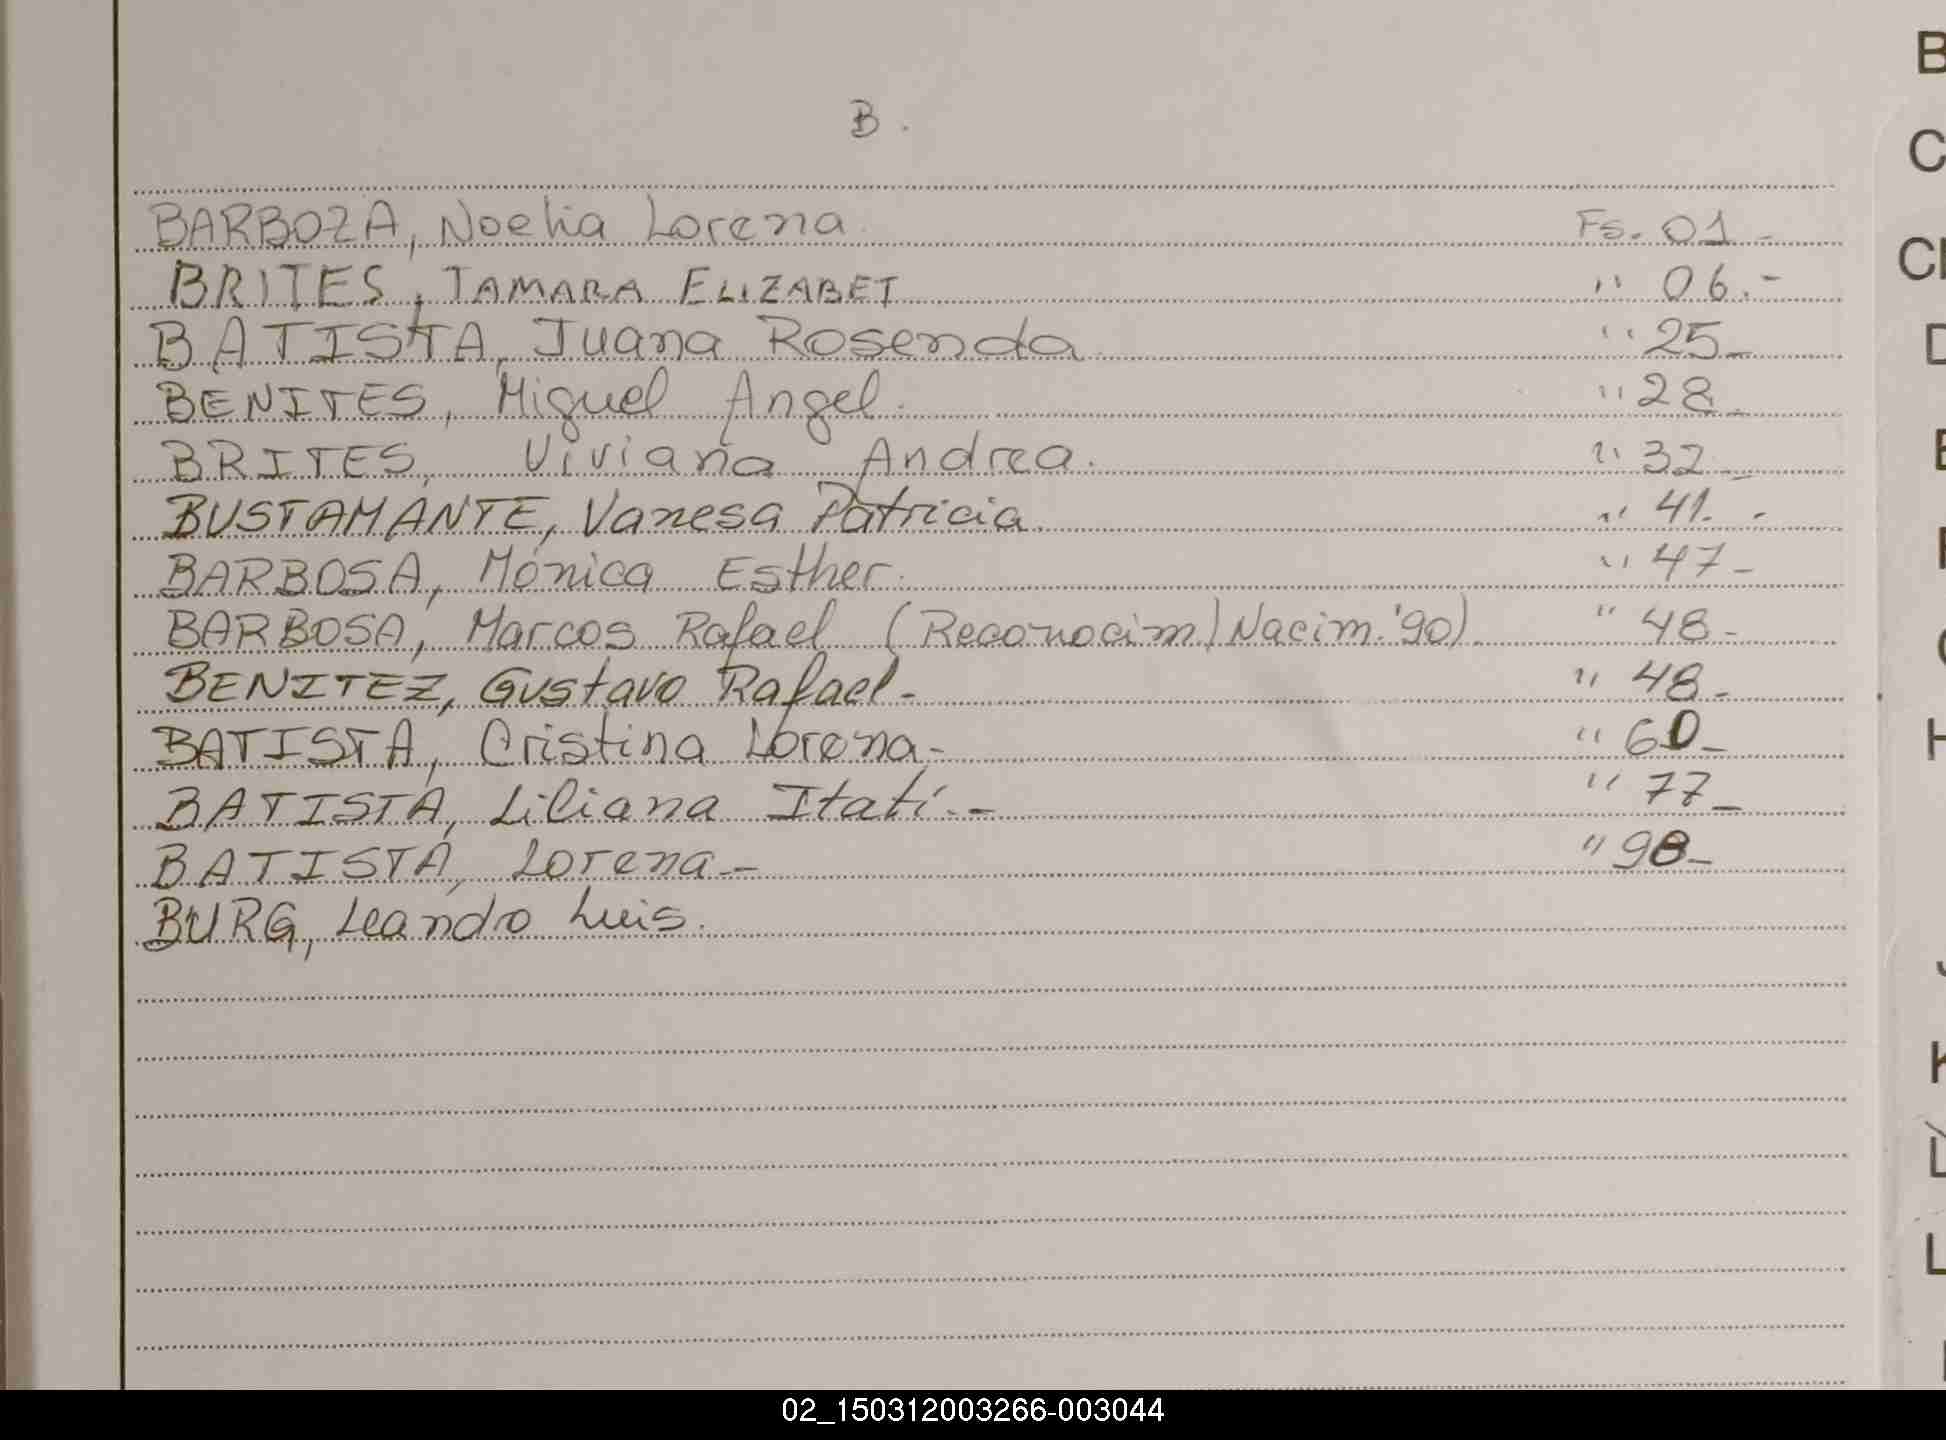 B.
BARBOZA, Noelia Lorena. Fs. 01 -
BRITES, TAMARA ELIZABET " 06.-
BATISTA, Juana Rosenda " 25-
BENITES, Miguel Angel. " 28-
BRITES, Viviana Andrea. " 32-
BUSTAMANTE, Vanesa Patricia. " 41. -
BARBOSA, Mónica Esther. " 47-
BARBOSA, Marcos Rafael (Reconocim/Nacim.'90). " 48-
BENITEZ, Gustavo Rafael- " 48-
BATISTA, Cristina Lorena- " 60-
BATISTA, Liliana Itatí.- " 77-
BATISTA, Lorena- " 98-
BURG, Leandro Luis.
B
C
E
H
K
L
02_150312003266-003044